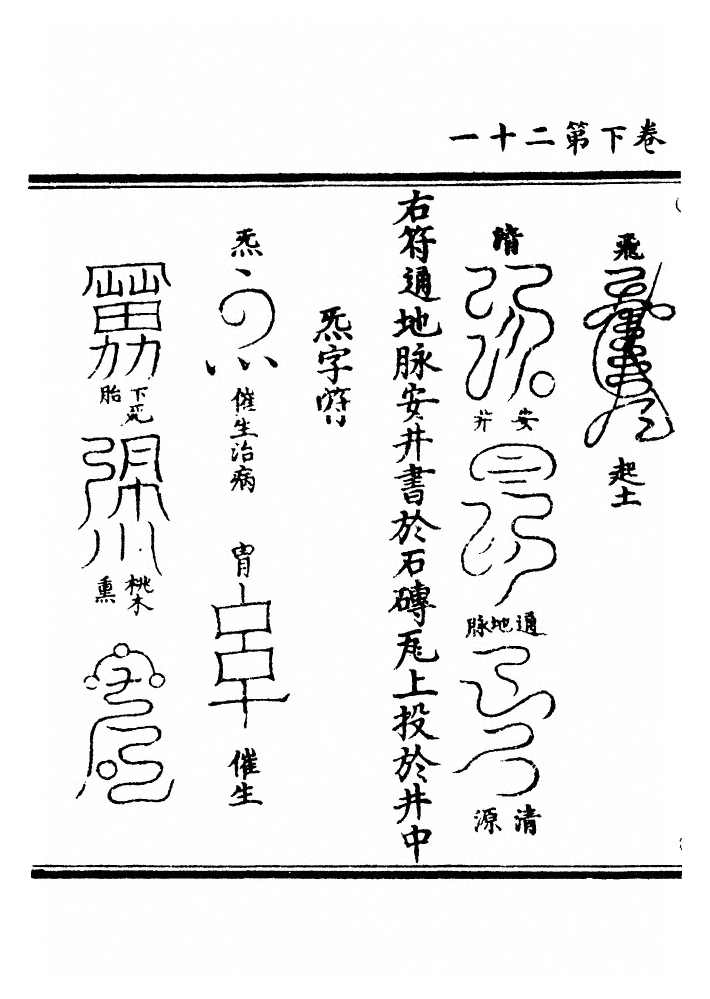 卷下第二十一
飛
起土
安井
通地脉
清源
右符通地脉安井書於石磚瓦上投於井中
炁字符
炁
催生治病
胄
催生
下死胎
桃木熏